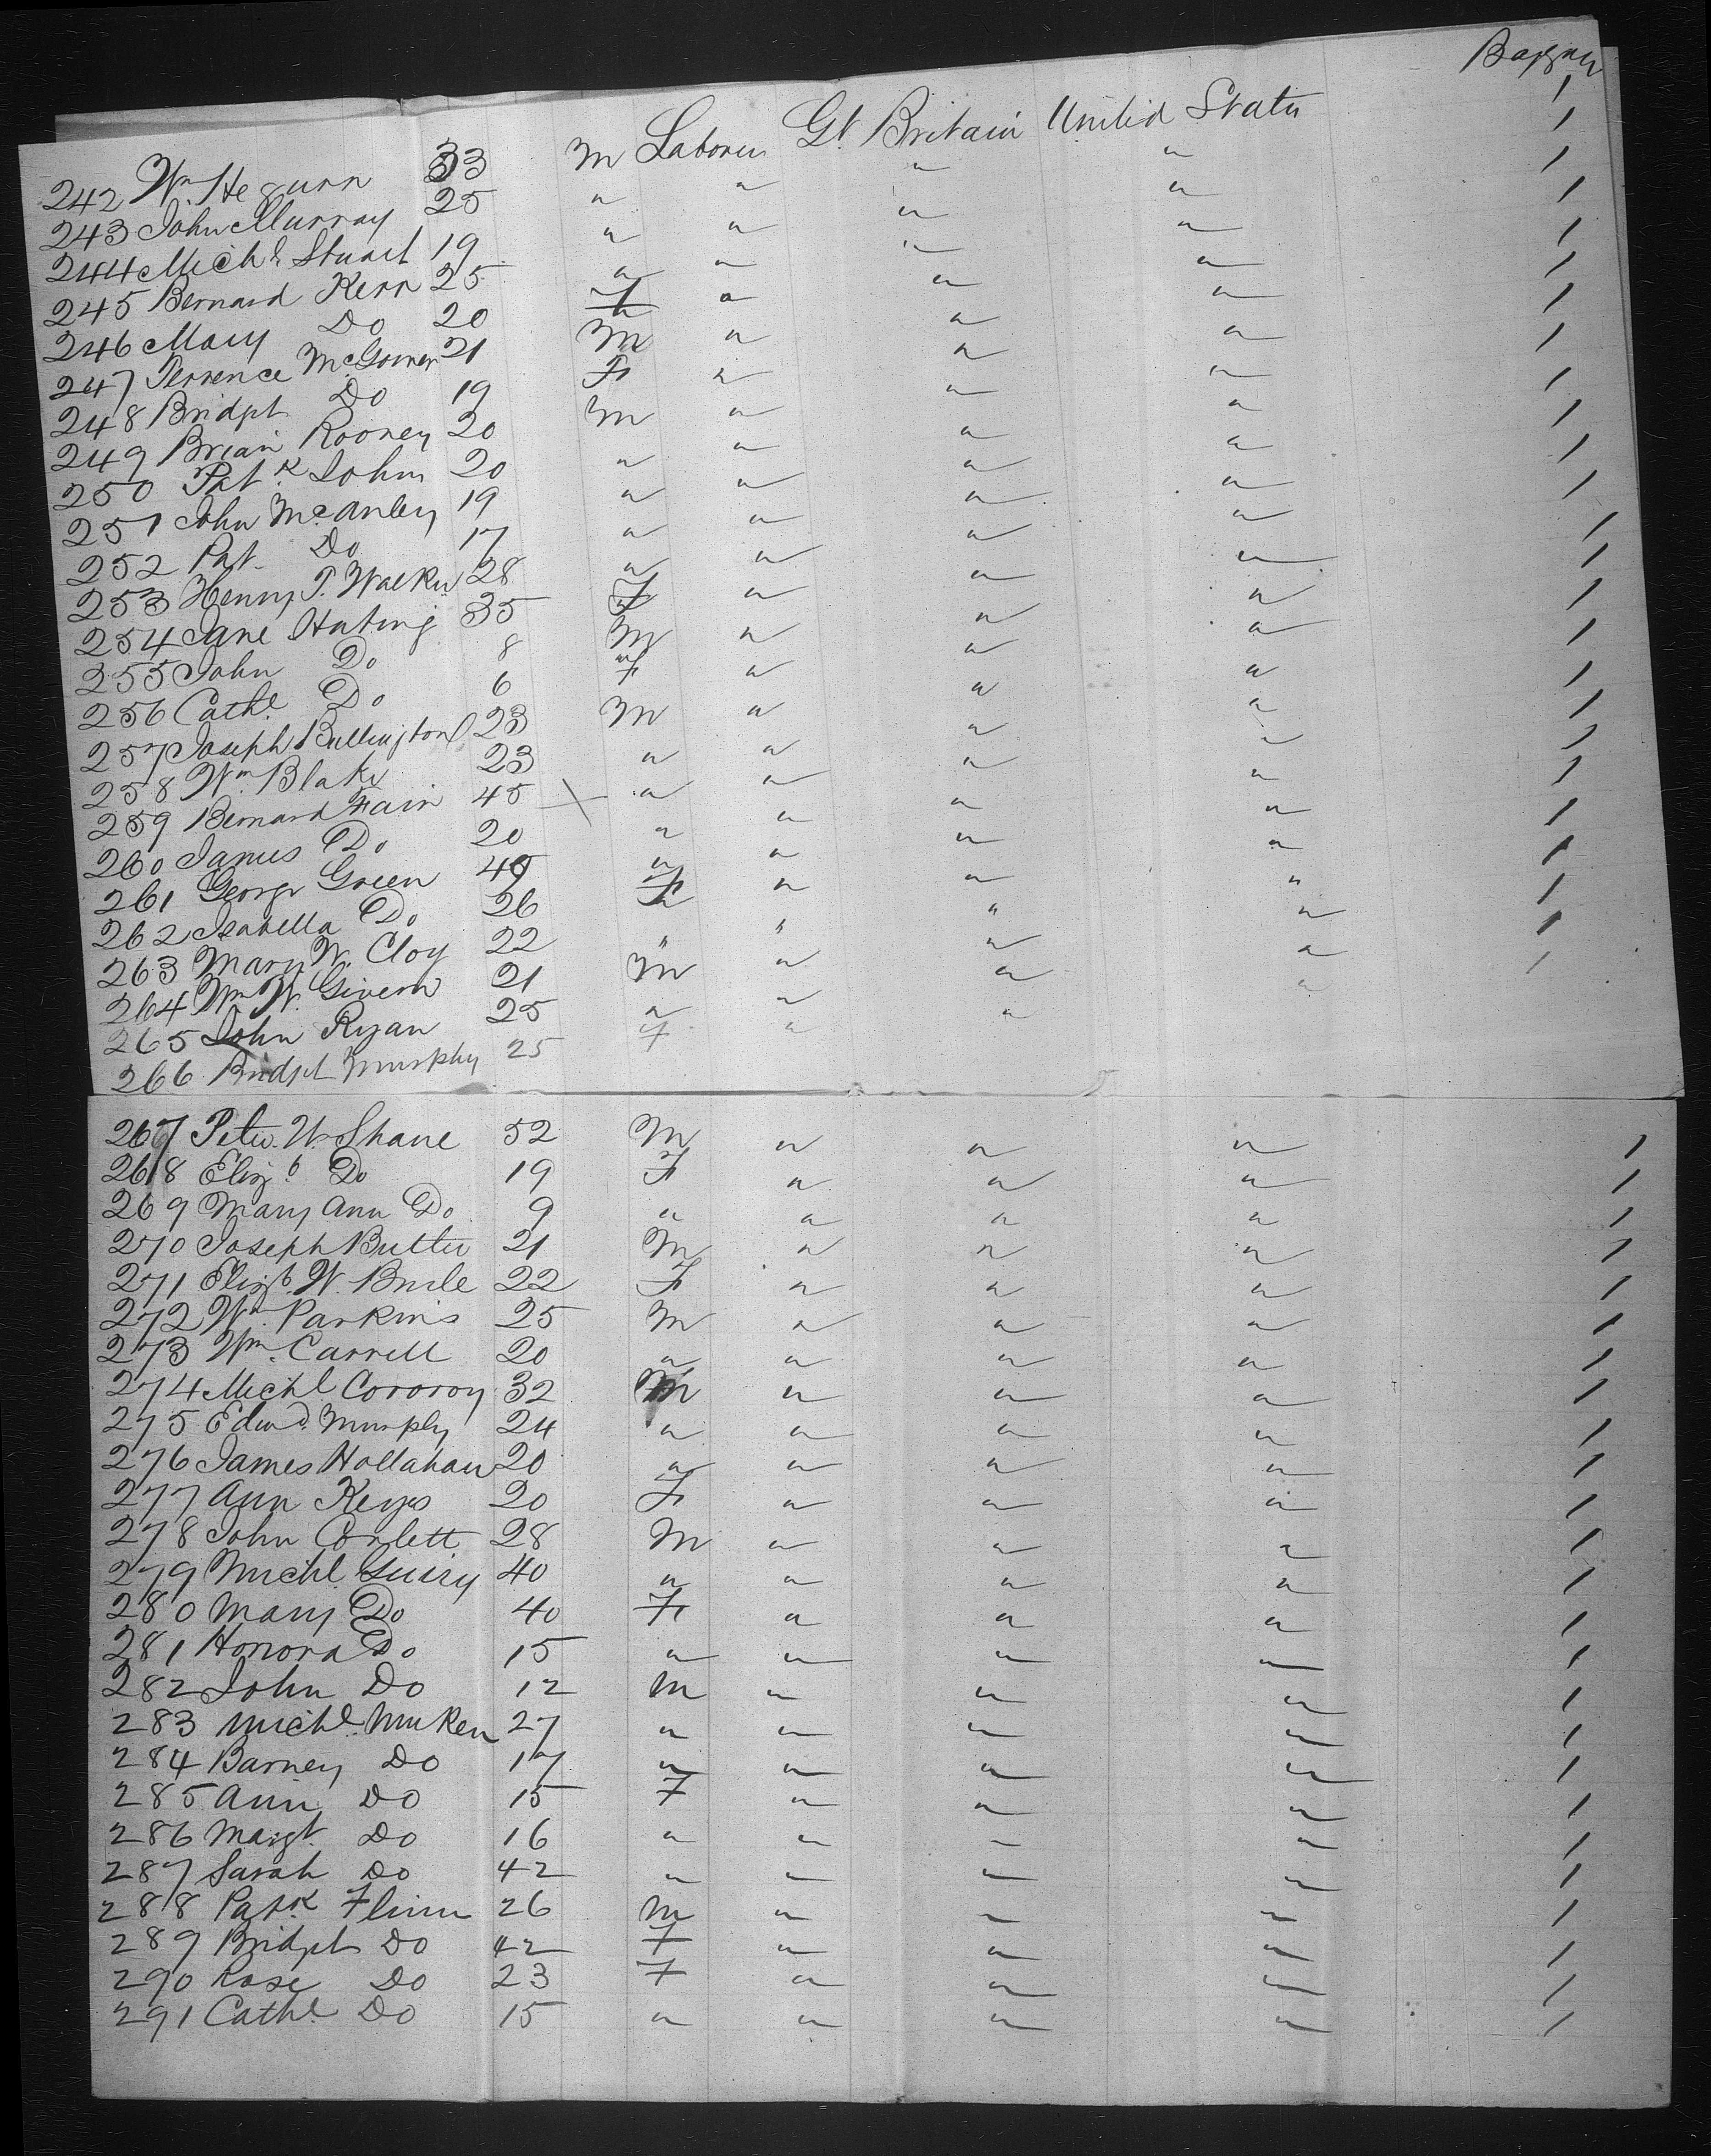 Baggage
242 Wm. Hegurn 33 M Laborer Gt. Britain United States 1
243 John Murray 25 " " " " 1
244 Michl Stuart 19 " " " " 1
245 Bernard Kerr 25 " " " " 1
246 Mary Do 20 F " " " 1
247 Terrence McGovren 21 M " " " 1
248 Bridgt Do 19 F " " " 1
249 Brian Rooney 20 M " " " 1
250 Patk. John 20 " " " " 1
251 John McAnley 19 " " " " 1
252 Pat Do 17 " " " " 1
253 Henry P. Walker 28 " " " " 1
254 Jane 35 F " " " 1
255 John Do 8 M " " " 1
256 Cathe Do 6 F " " " 1
257 Joseph Bullington 23 M " " " 1
258 Wm. Blake 23 " " " " 1
259 Bernard Fain 45 X " " " " 1
260 James Do 20 " " " " 1
261 George Green 45 " " " " 1
262 Isabella Do 26 F " " " 1
263 Mary W. Cloy 22 " " " " 1
264 Wm. W. Givern 21 M " " " 1
265 John Ryan 25 " " " " 1
266 Bridgt Murphy 25 F
267 Peter W. Shane 52 M " " " 1
268 Elizb. Do 19 F " " " 1
269 Mary Ann Do 9 " " " " 1
270 Joseph Butler 21 M " " " 1
271 Elizb. W. Brile 22 F " " " 1
272 Wm. Parkins 25 M " " " 1
273 Wm. Carrell 20 " " " " 1
274 Michl Cororoy 32 M " " " 1
275 Edwd. Murphy 24 " " " " 1
276 James Hollahan 20 " " " " 1
277 Ann Keyes 20 F " " " 1
278 John Corlett 28 M " " " 1
279 Michl. Guiry 40 " " " " 1
280 Mary Do 40 F " " " 1
281 Honora Do 15 " " " " 1
282 John Do 12 M " " " 1
283 Michl. 27 " " " " 1
284 Barney Do 17 " " " " 1
285 Ann Do 15 F " " " 1
286 Margt. Do 16 " " " " 1
287 Sarah Do 42 " " " " 1
288 Patk Flinn 26 M " " " 1
289 Bridgt Do 42 F " " " 1
290 Rose Do 23 F " " " 1
291 Cathe. Do 15 " " " " 1